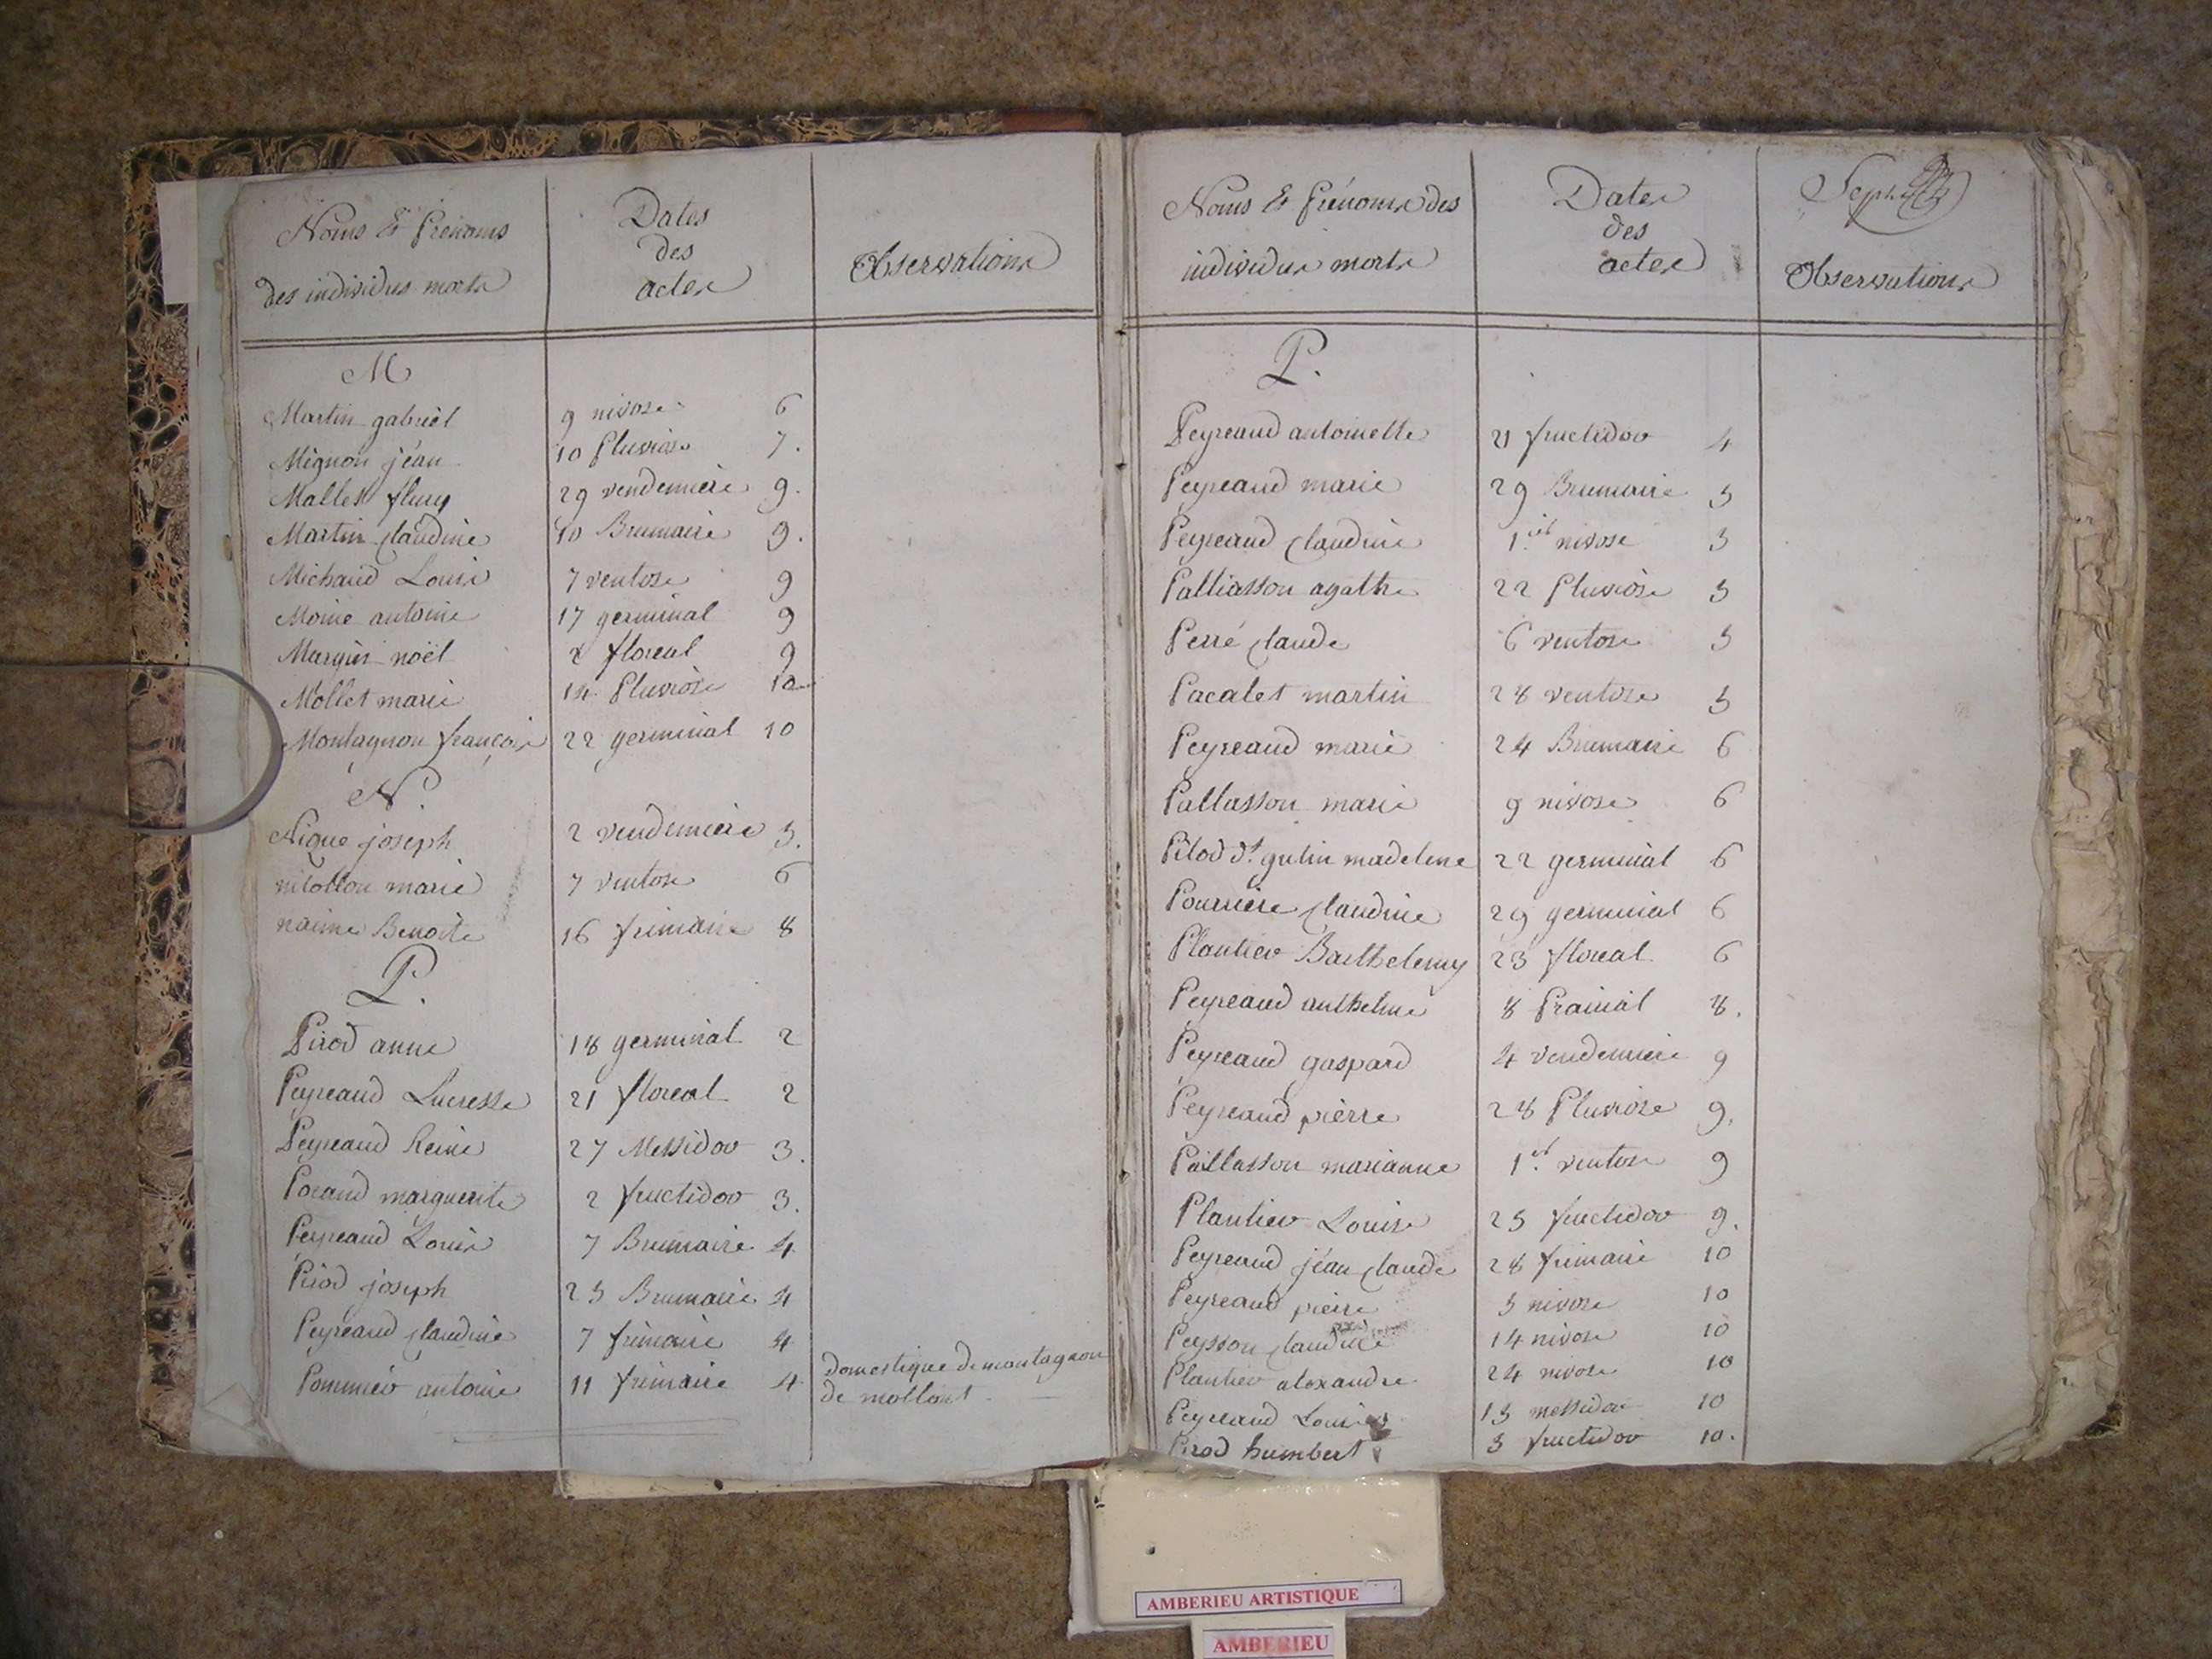 Noms & Prénoms
des individus morts
Dates
des
actes
Observations
M
Martin gabriel 9 nivose 6
Mignon jéan 10 Pluviose 7.
Mallet fleury 29 vendemiere 9.
Martin claudine 10 Brumaire 9.
Michaud Louis 7 ventose 9
Moine antoine 17 germinal 9
Margùin noël 2 floreal 9
Mollet marie 14 Pluviose 10
Montagnon françois 22 germinal 10
N.
Nique joseph 2 vendemiere 5.
nitollon marie 7 ventose 6
naime Benoite 16 frimaire 8
P.
Pirod anne 18 germinal 2
Peyreaud Lucresse 21 floreal 2
Peyreaud Reine 27 Messidor 3.
Pocaud marguerite 2 fructidor 3.
Peyreaud Louis 7 Brumaire 4
Pirod joseph 25 Brumaire 4
Peyreaud claudine 7 frimaire 4
Pommiér antoine 11 frimaire 4 domestique de montagnon
de mollard
Noms & Prénoms des
individus morts
Dates
des
actes
Observations
P.
Peyreaud antoinette 21 fructidor 4
Peyreaud marie 29 Brumaire 5
Peyreaud claudine 1.er nivose 5
Palliasson agathe 22 Pluviose 5
Perré claude 6 ventose 5
Pacalet martin 28 ventose 5
Peyreaud marie 24 Brumaire 6
Pallasson marie 9 nivose 6
Pilod dt. gulin madelene 22 germinal 6
Pourriere claudine 29 germinal 6
Plantier Barthelemy 23 floreal 6
Peyreaud anthelme 8 Prairial 8.
Peyreaud gaspard 4 vendemiere 9
Peyreaud pièrre 28 Pluviose 9.
Paillasson marianne 1.er ventose 9
Plantier Louise 25 fructidor 9.
Peyreaud jéan claude 28 frimaire 10
Peyreaud pieire 5 nivose 10
Peysson claudine 14 nivose 10
Plantier alexandre 24 nivose 10
Peyreaud Louise 15 messidor 10
Pirod humbert 5 fructidor 10.
AMBERIEU ARTISTIQUE
AMBERIEU